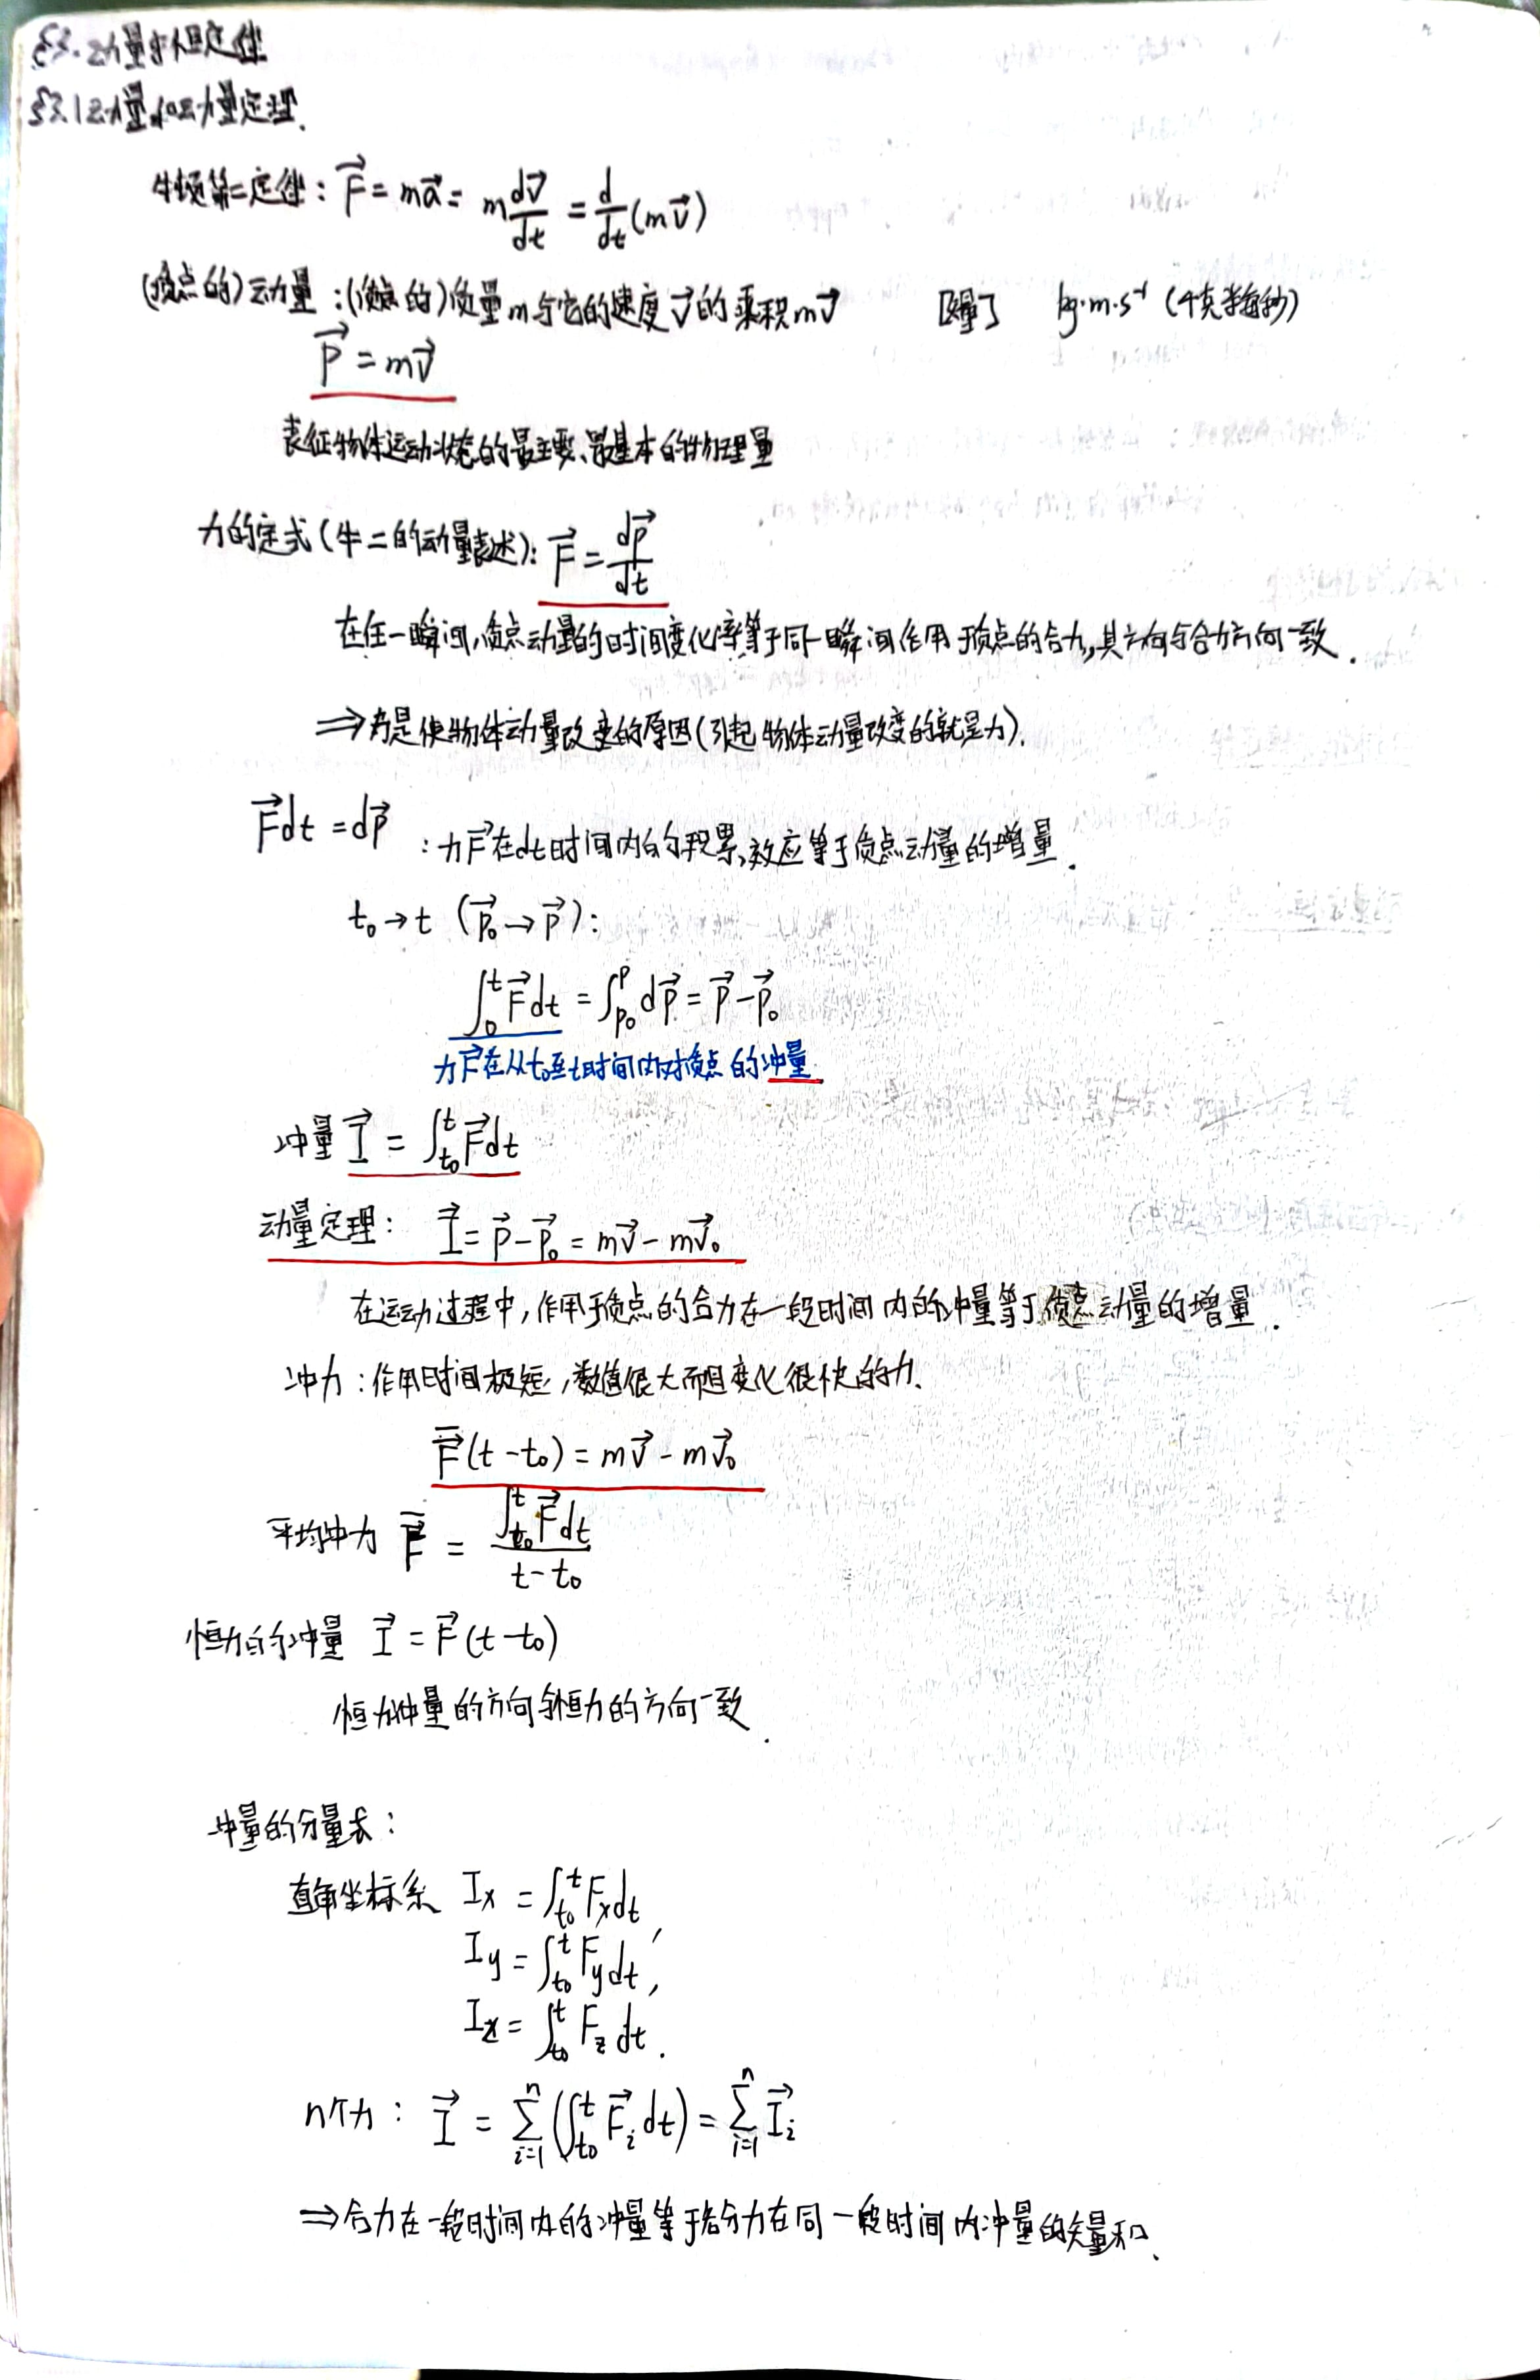 §3. 动量守恒定律
§3.1 动量和动量定理.
牛顿第二定律: $\vec{F}=m\vec{a}=m\frac{d\vec{v}}{dt}=\frac{d}{dt}(m\vec{v})$
(质点的)动量:(质点的)质量m与它的速度$\vec{v}$的乘积$m\vec{v}$ [矢量] kg·m·s⁻¹ (千克米每秒)
$\vec{P}=m\vec{v}$
表征物体运动状态的最主要、最基本的物理量
力的定式(牛二的动量表述): $\vec{F}=\frac{d\vec{p}}{dt}$
在任一瞬间,质点动量的时间变化率等于同一瞬间作用于质点的合力,其方向与合力方向一致.
⇒力是使物体动量改变的原因(引起物体动量改变的就是力).
$\vec{F}dt=d\vec{p}$ :力$\vec{F}$在dt时间内的积累,效应等于质点动量的增量.
$t_0→t$ $(\vec{p}_0→\vec{p})$:
$\int_0^t\vec{F}dt=\int_{p_0}^{p}d\vec{p}=\vec{p}-\vec{p}_0$
力$\vec{F}$在从$t_0$至t时间内对质点的冲量
冲量$\vec{I}=\int_{t_0}^t\vec{F}dt$
动量定理: $\vec{I}=\vec{p}-\vec{p}_0=m\vec{v}-m\vec{v}_0$
在运动过程中,作用于质点的合力在一段时间内的冲量等于质点动量的增量.
冲力:作用时间极短,数值很大而且变化很快的力.
$\overline{\vec{F}}(t-t_0)=m\vec{v}-m\vec{v}_0$
平均冲力 $\overline{\vec{F}}=\frac{\int_{t_0}^t\vec{F}dt}{t-t_0}$
恒力的冲量 $\vec{I}=\vec{F}(t-t_0)$
恒力冲量的方向与恒力的方向一致.
冲量的分量式:
直角坐标系 $I_x=\int_{t_0}^tF_xdt$,
$I_y=\int_{t_0}^tF_ydt$,
$I_z=\int_{t_0}^tF_zdt$.
n个力: $\vec{I}=\sum_{i=1}^n(\int_{t_0}^t\vec{F}_idt)=\sum_{i=1}^n\vec{I}_i$
⇒合力在一段时间内的冲量等于各分力在同一段时间内冲量的矢量和.